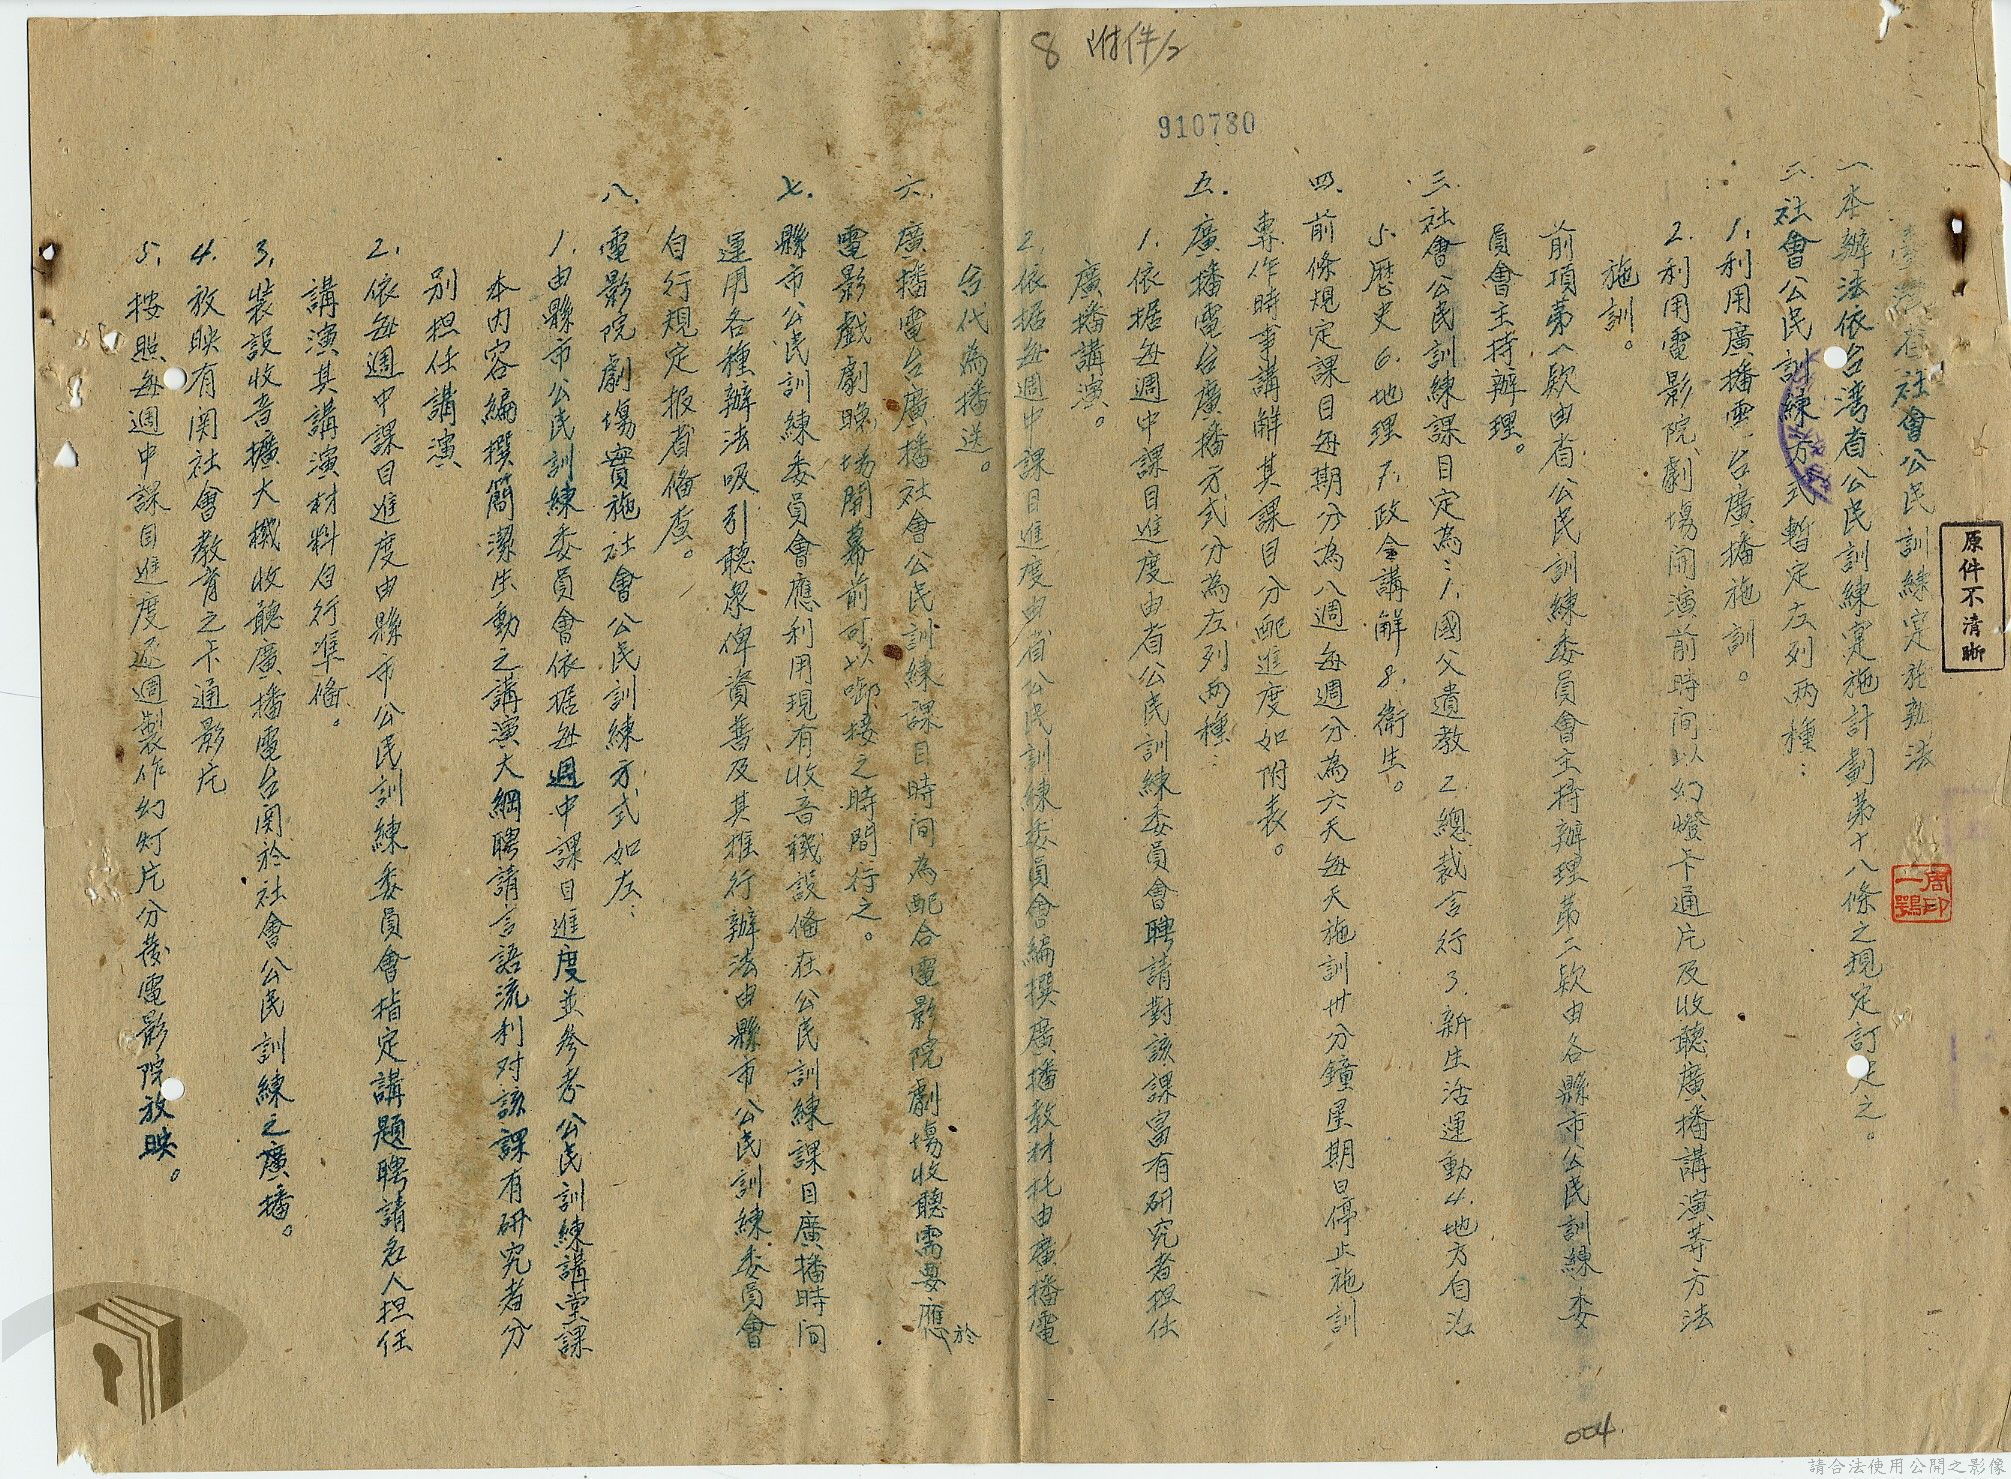 8 附件2
910780
臺灣省社會公民訓練實施辦法
一、本辦法依台湾省公民訓練實施計劃第十八條之規定訂定之。
二、社會公民訓練方式暫定左列兩種：
1.利用廣播電台廣播施訓。
2.利用電影院劇場開演前時间以幻燈卡通片及收聽廣播講演等方法
施訓。
前項第一款由省公民訓練委員會主持辦理第二款由各縣市公民訓練委
員會主持辦理。
三、社會公民訓練課目定為：1.國父遺教2.總裁言行3.新生活運動4.地方自治
5.歷史6.地理7.政令講解8.衛生。
四、前條規定課目每期分為八週每週分為六天每天施訓卅分鐘星期日停止施訓
專作時事講解其課目分配進度如附表。
五.廣播電台廣播方式分為左列两種：
1.依据每週中課目進度由省公民訓練委員會聘請對該課富有研究者担任
廣播講演。
2.依据每週中課目進度由省公民訓練委員會編撰廣播教材托由廣播電
台代為播送。
六、廣播電台廣播社會公民訓練課目時间為配合電影院劇場收聽需要應於
電影戲劇晚場開幕前可以啣接之時間行之。
七.縣市公民訓練委員會應利用現有收音機設俻在公民訓練課目廣播時间
運用各種辦法吸引聽衆俾資普及其推行辦法由縣市公民訓練委員會
自行規定报省俻查。
八、電影院劇場實施社會公民訓練方式如左：
1.由縣市公民訓練委員會依据每週中課目進度並參考公民訓練講堂課
本内容編撰簡潔生動之講演大綱聘請言語流利对該課有研究者分
別担任講演
2.依每週中課目進度由縣市公民訓練委員會指定講題聘請名人担任
講演其講演材料自行準俻。
3.裝設收音擴大機收聽廣播電台関於社會公民訓練之廣播。
4.放映有関社會教育之卡通影片
5.按照每週中課目進度逐週製作幻灯片分發電影院放映。
原件不清晰
周一鶚印
004
請合法使用公開之影像